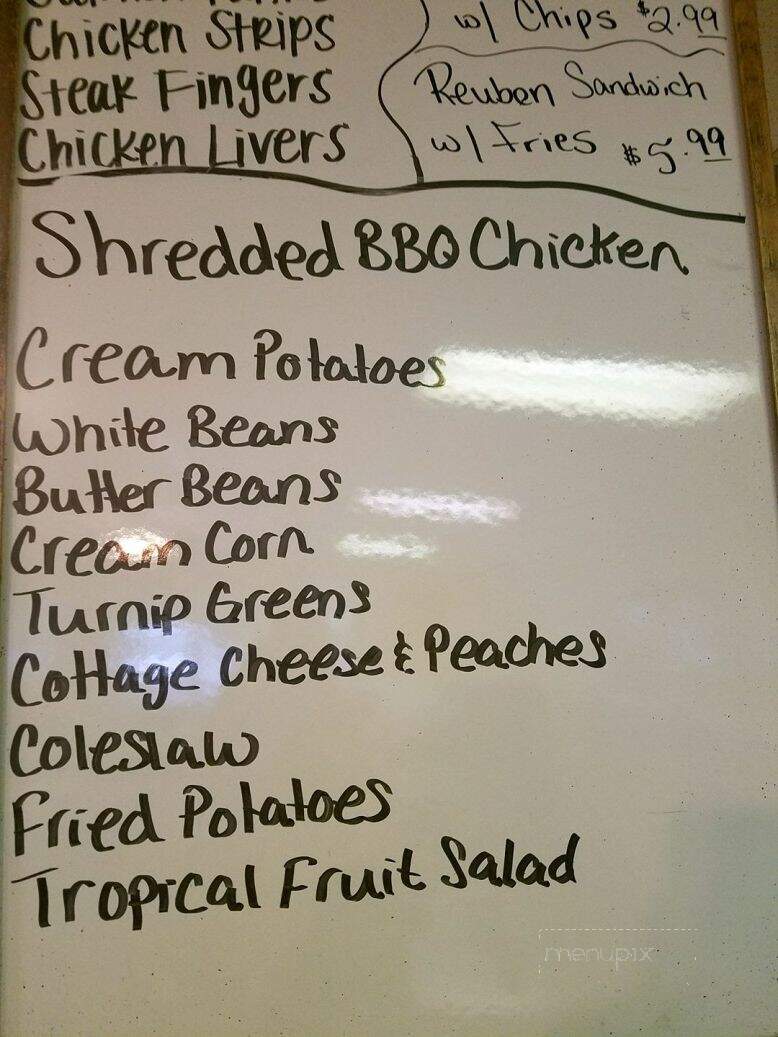 Chicken Strips
Steak Fingers
Chicken Livers
w/ Chips $2.99
Reuben Sandwich
w/ Fries $5.99
Shredded BBQ Chicken
Cream Potatoes
White Beans
Butter Beans
Cream Corn
Turnip Greens
Cottage Cheese & Peaches
Coleslaw
Fried Potatoes
Tropical Fruit Salad
menupix